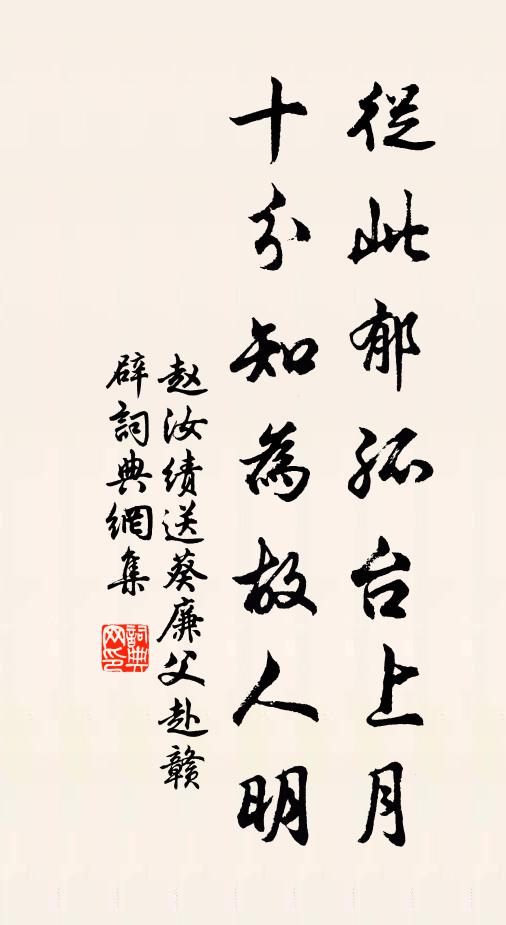 從此郁孤台上月
十分知為故人明
赵汝绩送葵廉父赴赣
辟詞典網集
詞典
网印